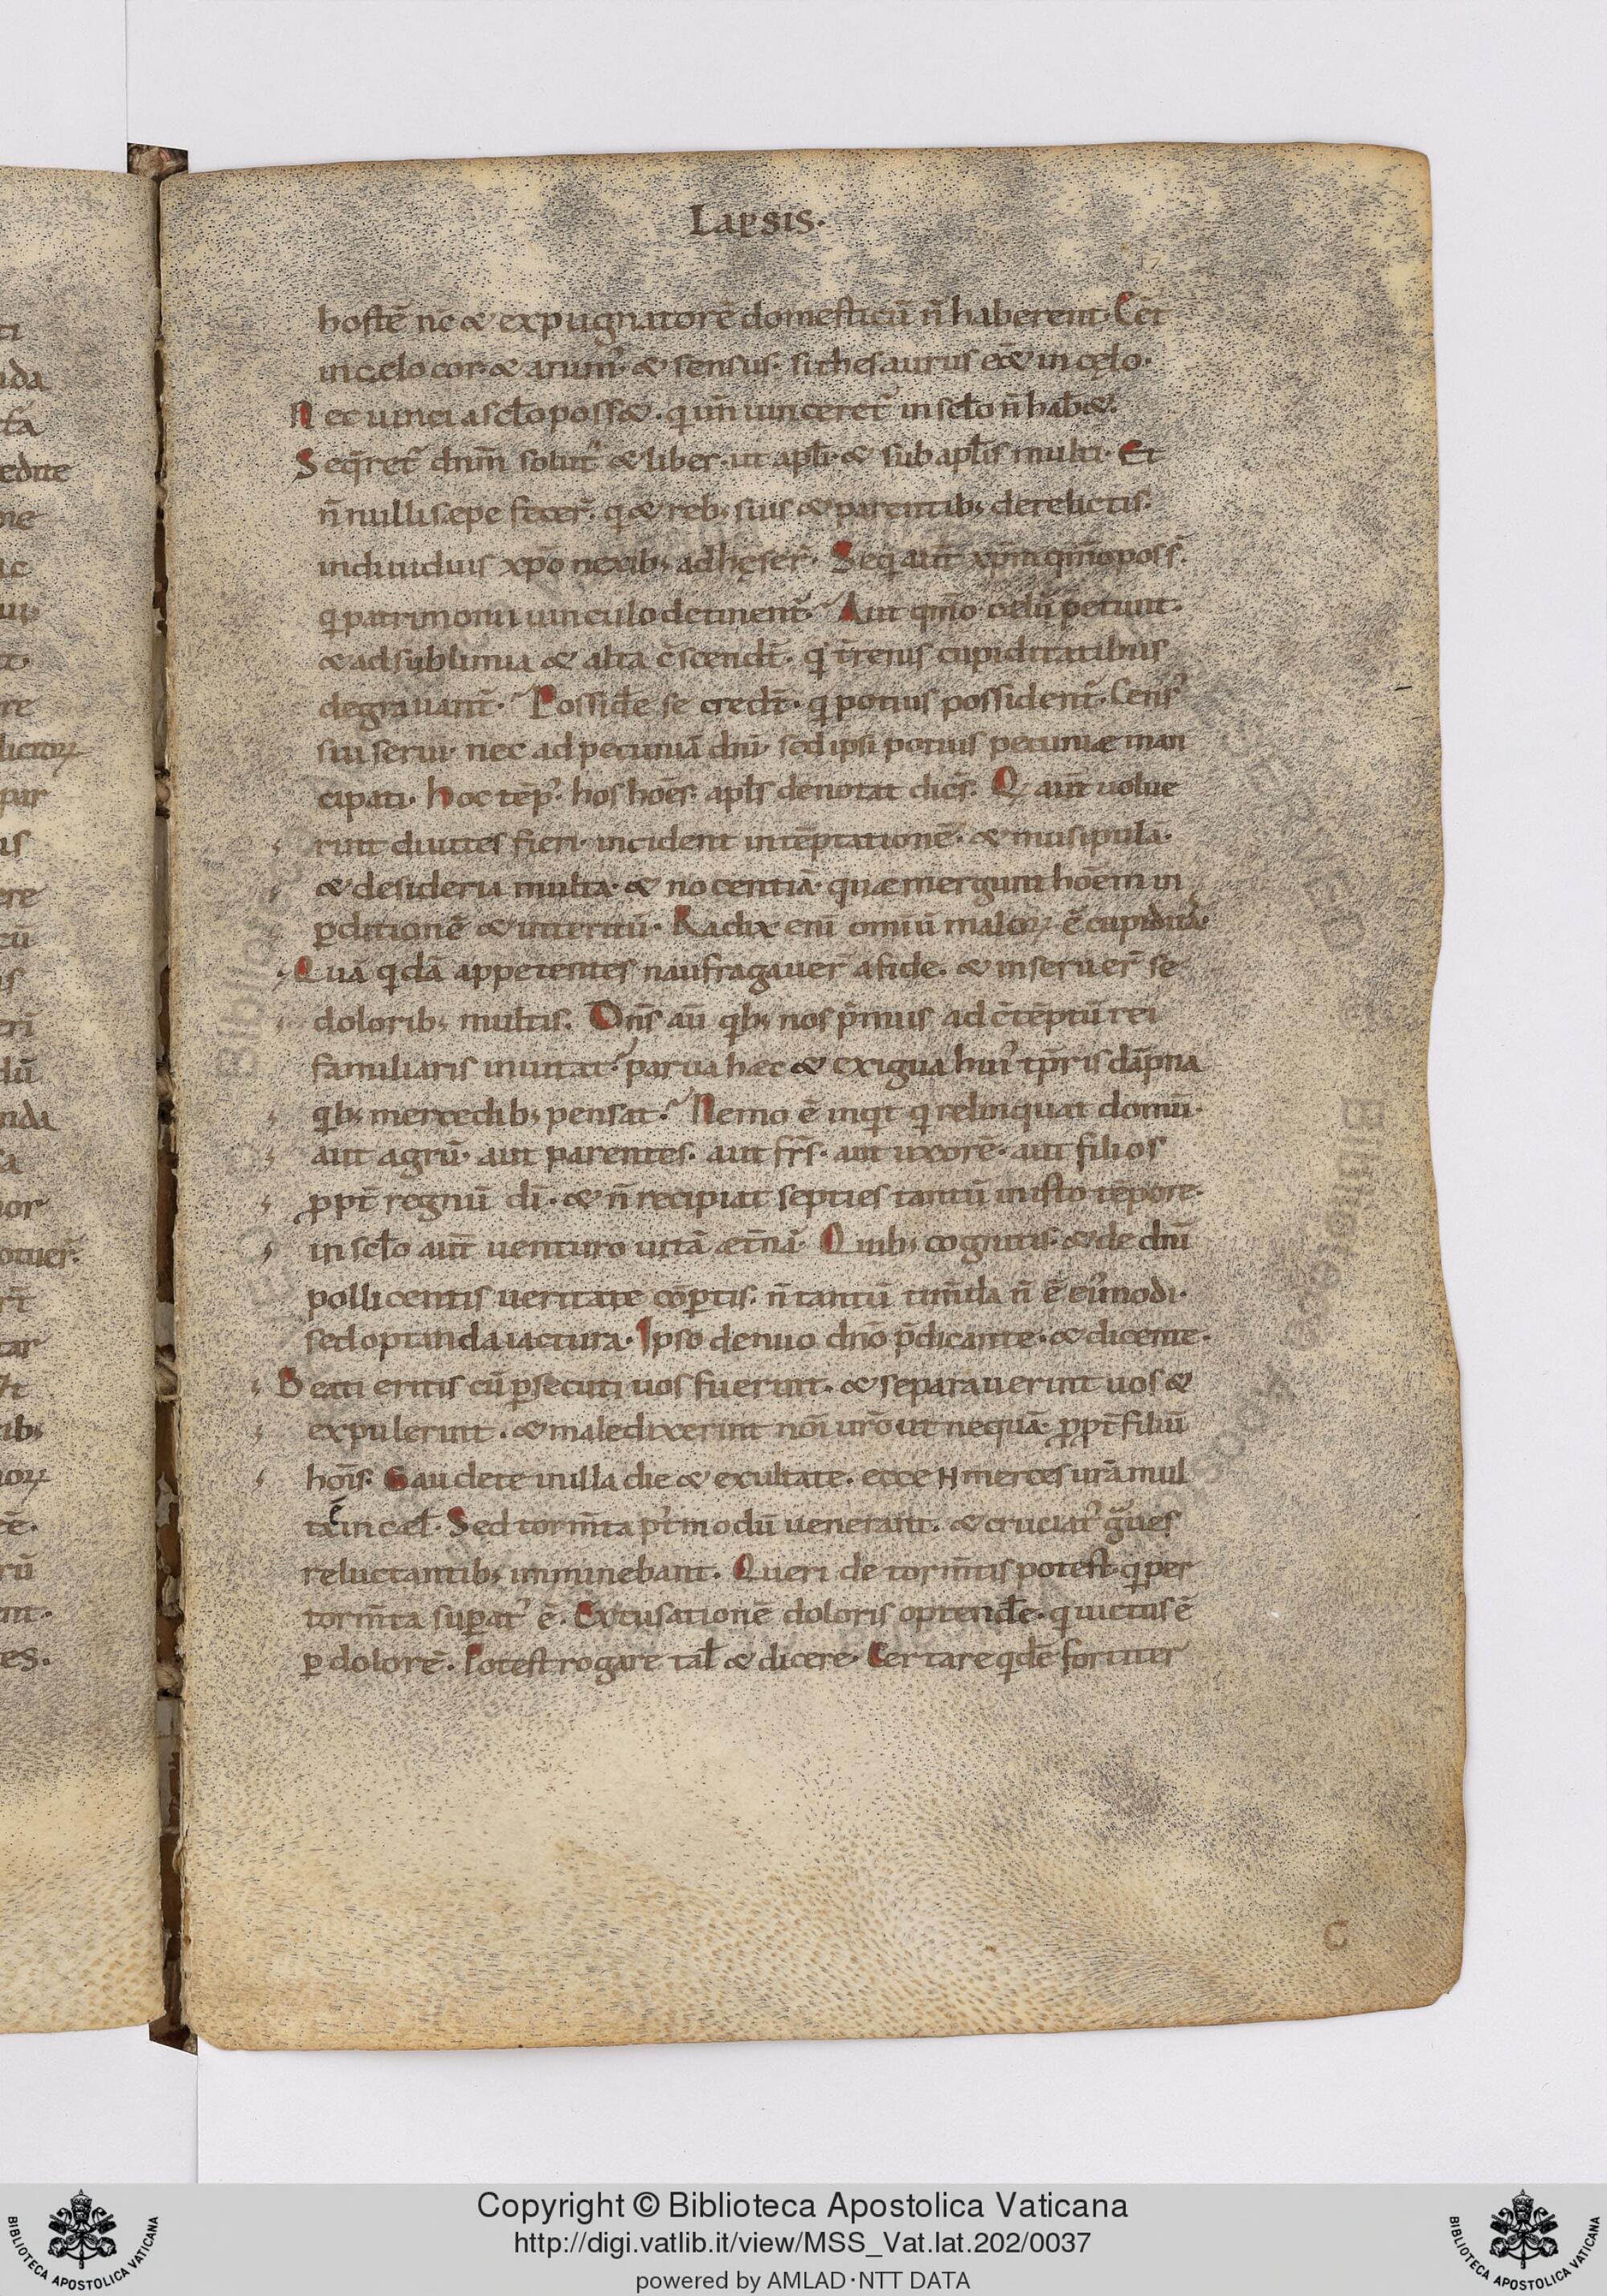 Lapsis·
hostē nc̄ & expugnatorē domesticū n̄ haberent· Eēt
in cęlo cor· & anim᾽· & sensus· si thesaurus e&̄ in cęlo·
Nec uinci a sclo poss&· q̇ un̄ uinceret᾽ in sclo n̄ hab&·
Seq̄ret᾽ dnm̄ solut᾽ & liber· ut apli· & sub aplis multi· Et
n̄ nulli sepe fecer̄· q̇ & reb; suis & parentib; derelictis·
indiuiduis xp̄o nexib; adhęser̄· Seq̇ aut̄ xp̄m qm̄o poss̄·
q̇ patrimonii uinculo detinent᾽· Aut qm̄o cælū petunt·
& ad sublimia & alta c̄scendt̄· q̇ t̄renis cupiditatibus
degrauant᾽· Possidēe se credt̄· q̇ potius possident᾽· Cens᾽
sui serui· nec ad pecuniā dn̄i· sed ipsi potius pecuniæ man
cipati· Hoc tēp᾽· hos hoēs· apls denotat dicr̄s· Q̇ aut̄ uolue
rint diuites fieri· incident in tēptationē· & musipulā·
& desideria multa· & nocentiā· quæ mergunt hoēm in
ꝑditionē & interitū· Radix enī omniū maloꝝ ē cupiditas·
Quā q̇dā appetentes naufragauer̄ a fide· & inseruer̄ se
dolorib; multis· Dn̄s aū q̇b; nos p̄mus ad c̄tēptū rei
familiaris inuitat· parua hæc & exigua hui᾽ tp̄ris dāpna
q̇b; mercedib; pensat· Nemo ē inq̇t q̇ relinquat domū·
aut agrū· aut parentes· aut frs̄· aut uxorē· aut filios
ꝓpt̄ regnū dī· & n̄ recipiat septies tantū in isto tēpore·
in sclo aut̄ uenturo uitā æt̄nā· Quib; cognitis· & de dnī
pollicentis ueritate cōꝑtis· n̄ tantū tim̄da n̄ ē ei᾽modi·
sed optanda iactura· Ipso denuo dn̄o p̄dicante· & dicente·
Beati eritis cū ꝑsecuti uos fuerint· & separauerint uos &
expulerint· & maledixerint noī ur̄o ut nequā· ꝓpt̄ filiū
hoīs· Gaudete in illa die & exultate· ecce N merces urā mul
ta ē in cæl· Sed torm̄ta p᾽tmodū uenerant· & cruciat᾽ g̊ues
reluctantib; imminebant· Queri de torm̄tis potest· q̇ per
torm̄ta suꝑat᾽ ē· Excusationē doloris optendēe· q̇ uictus ē
ꝑ dolorē· Potest rogare tal & dicere· Certare q̇dē fortiter
C
Copyright © Biblioteca Apostolica Vaticana
http://digi.vatlib.it/view/MSS_Vat.lat.202/0037
powered by AMLAD·NTT DATA
BIBLIOTECA APOSTOLICA VATICANA
BIBLIOTECA APOSTOLICA VATICANA